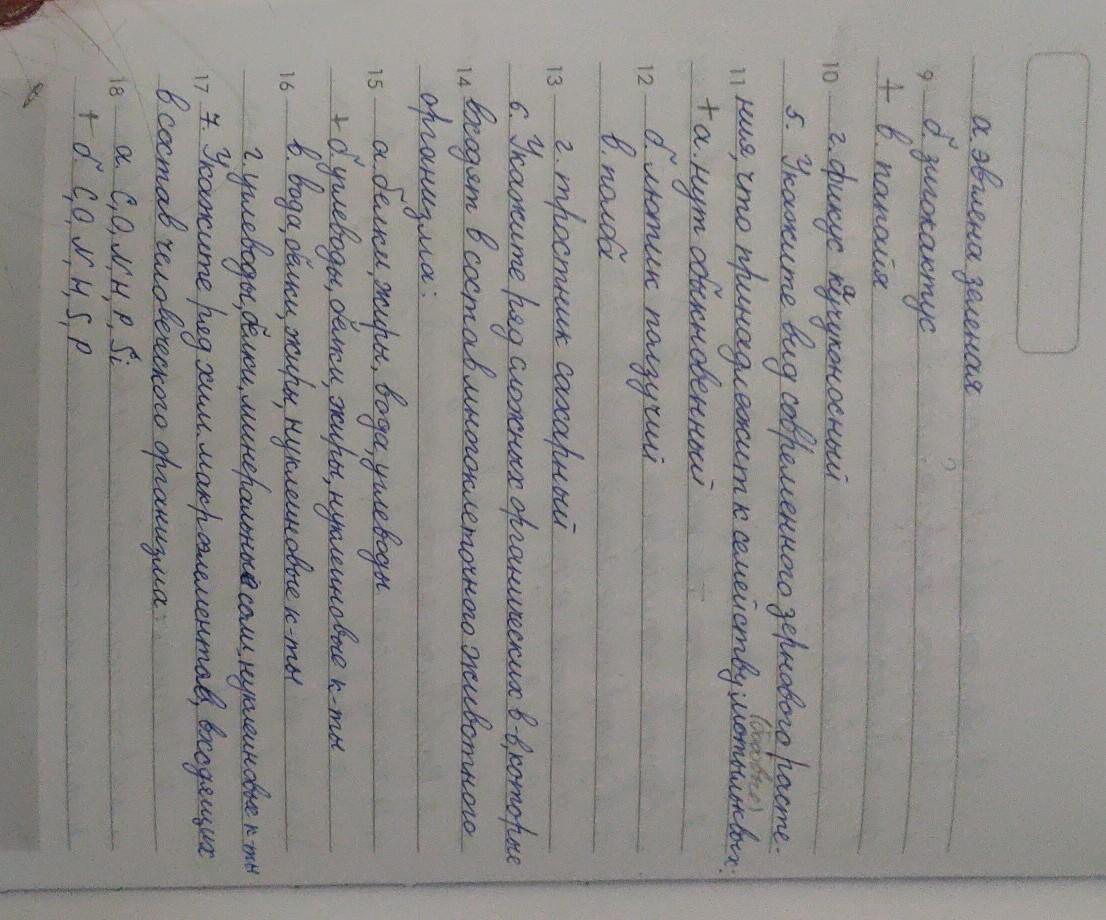 а. эвглена зеленая
9 б. зигокактус
+ в. папайя
10 г. фикус каучуконосный
5. Укажите вид современного зернового расте-
(бобовые)
11 ния, что принадлежит к семейству мотыльковых:
+ а. нут обыкновенный
12 б. лютик ползучий
в. полба
13 г. тростник сахарный
6. Укажите ряд сложных органических в-в, которые
14 входят в состав многоклеточного животного
организма:
15 а. белки, жиры, вода, углеводы
+ б. углеводы, белки, жиры, нуклеиновые к-ты
16 в. вода, белки, жиры, нуклеиновые к-ты
г. углеводы, белки, минеральные соли, нуклеиновые к-ты
17 7. Укажите ряд хим. макроэлементов, входящих
в состав человеческого организма:
18 а. C, O, N, H, P, Si
+ б. C, O, N, H, S, P